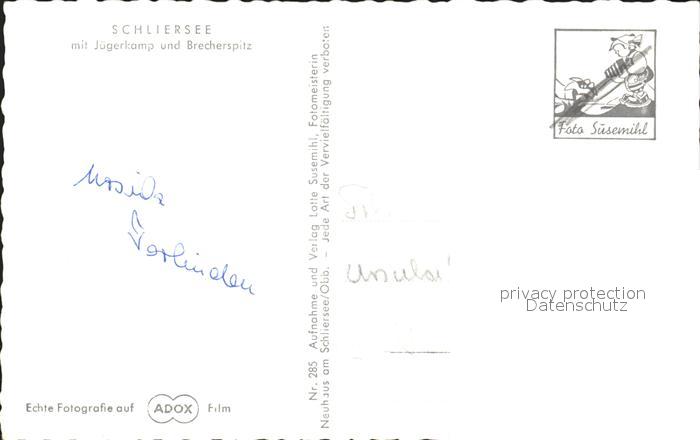 SCHLIERSEE
mit Jägerkamp und Brecherspitz
Foto Susemihl
Nr. 285 Aufnahme und Verlag Lotte Susemihl, Fotomeisterin
Neuhaus am Schliersee/Obb. – Jede Art der Vervielfältigung verboten
Ursula
Verlinden
Ursula
privacy protection
Datenschutz
Echte Fotografie auf ADOX Film